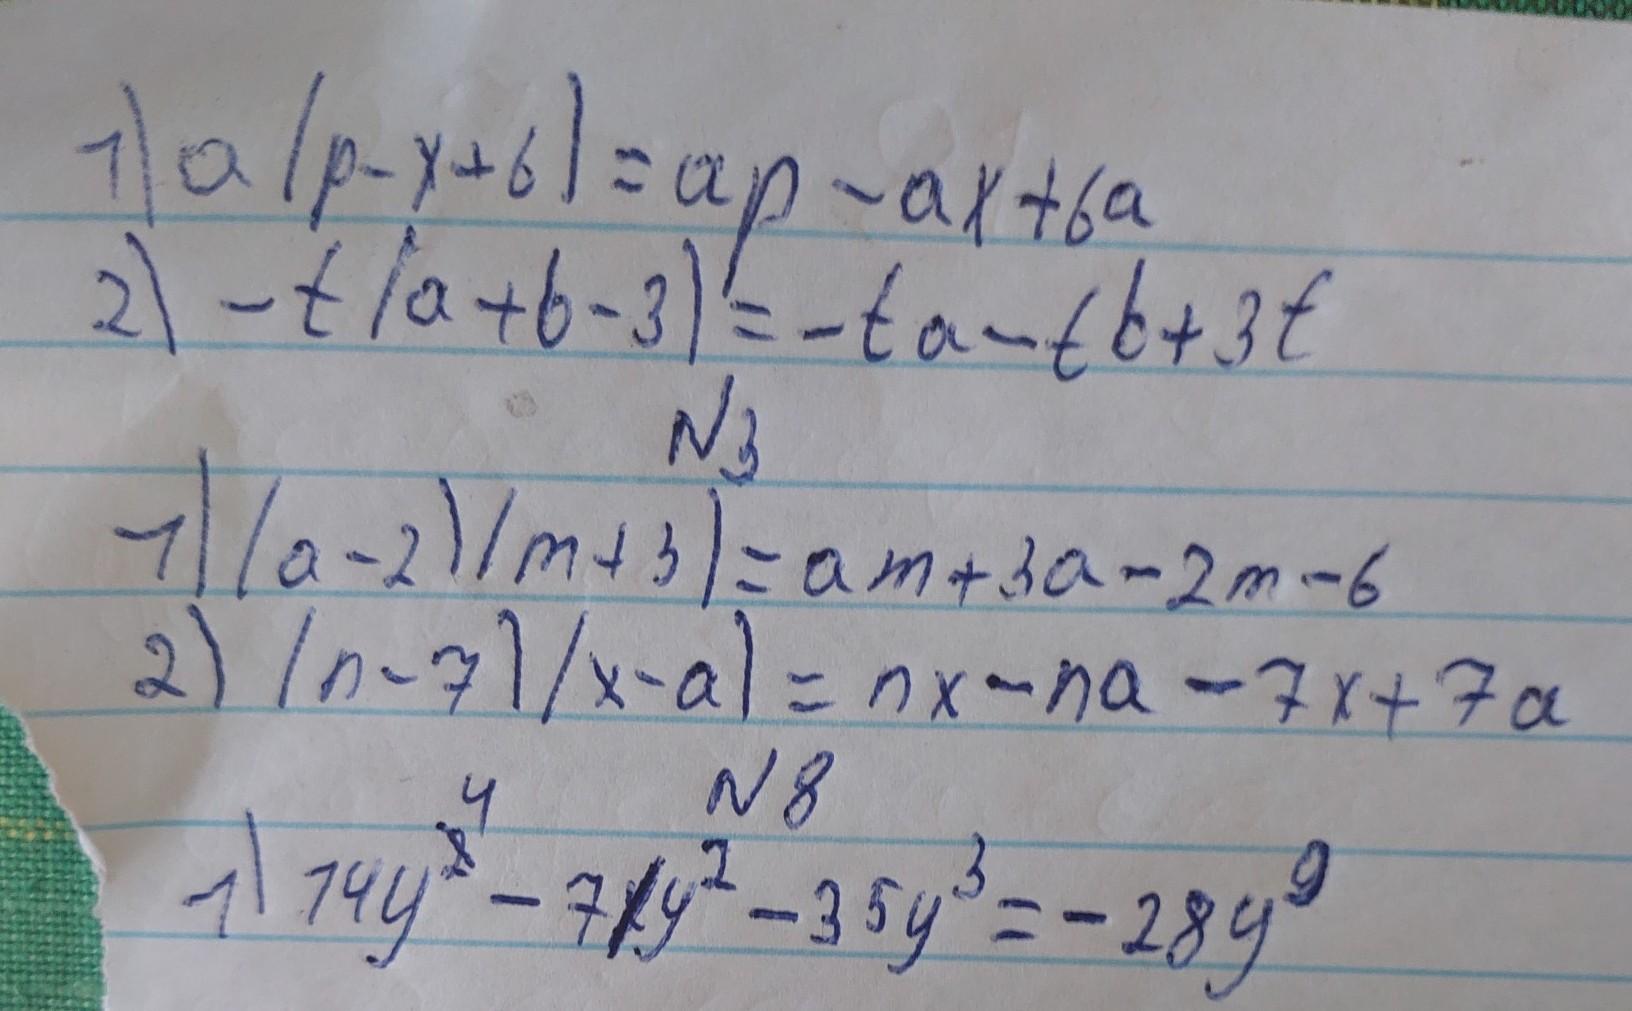 1) a(p-x+6)=ap-ax+6a
2) -t(a+b-3)=-ta-tb+3t
N3
1) (a-2)(m+3)=am+3a-2m-6
2) (n-7)(x-a)=nx-na-7x+7a
N8
1) 14y⁴-7y²-35y³=-28y⁹